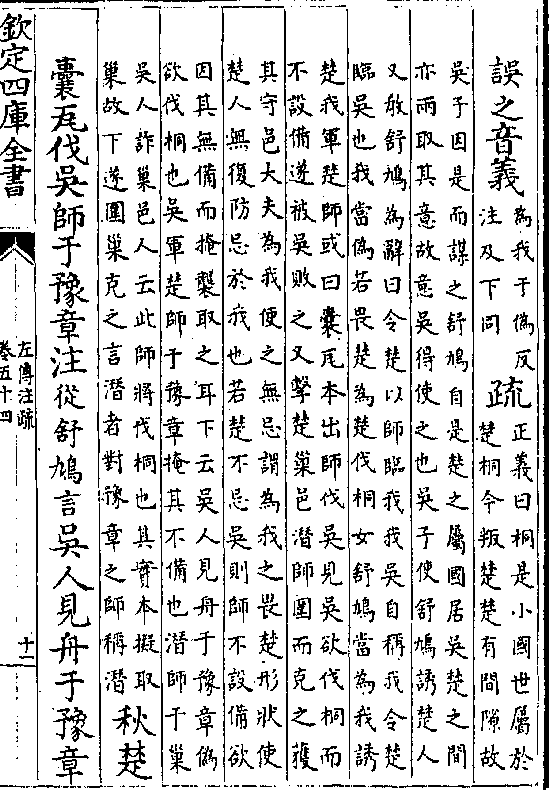 誤之音義為我于偽反
注及下同疏正義曰桐是小國世屬於
楚桐今叛楚楚有間隙故
吳子因是而謀之舒鳩自是楚之屬國居吳楚之間
亦兩取其意故意吳得使之也吳子使舒鳩誘楚人
又教舒鳩為辭曰令楚以師臨我我吳自稱我令楚
臨吳也我當偽若畏楚為楚伐桐女舒鳩當為我誘
楚我軍楚師或曰囊瓦本出師伐吳見吳欲伐桐而
不設備遂被吳敗之又擊楚巢邑潛師圍而克之獲
其守邑大夫為我使之無忌謂為我之畏楚形狀使
楚人無復防忌於我也若楚不忌吳則師不設備欲
因其無備而掩襲取之耳下云吳人見舟于豫章偽
欲伐桐也吳軍楚師于豫章掩其不備也潛師于巢
吳人詐巢邑人云此師將伐桐也其實本擬取
巢故下遂圍巢克之言潛者對豫章之師稱潛秋楚
囊瓦伐吳師于豫章注從舒鳩言吳人見舟于豫章
欽定四庫全書
左傳注疏
卷五十四
十一